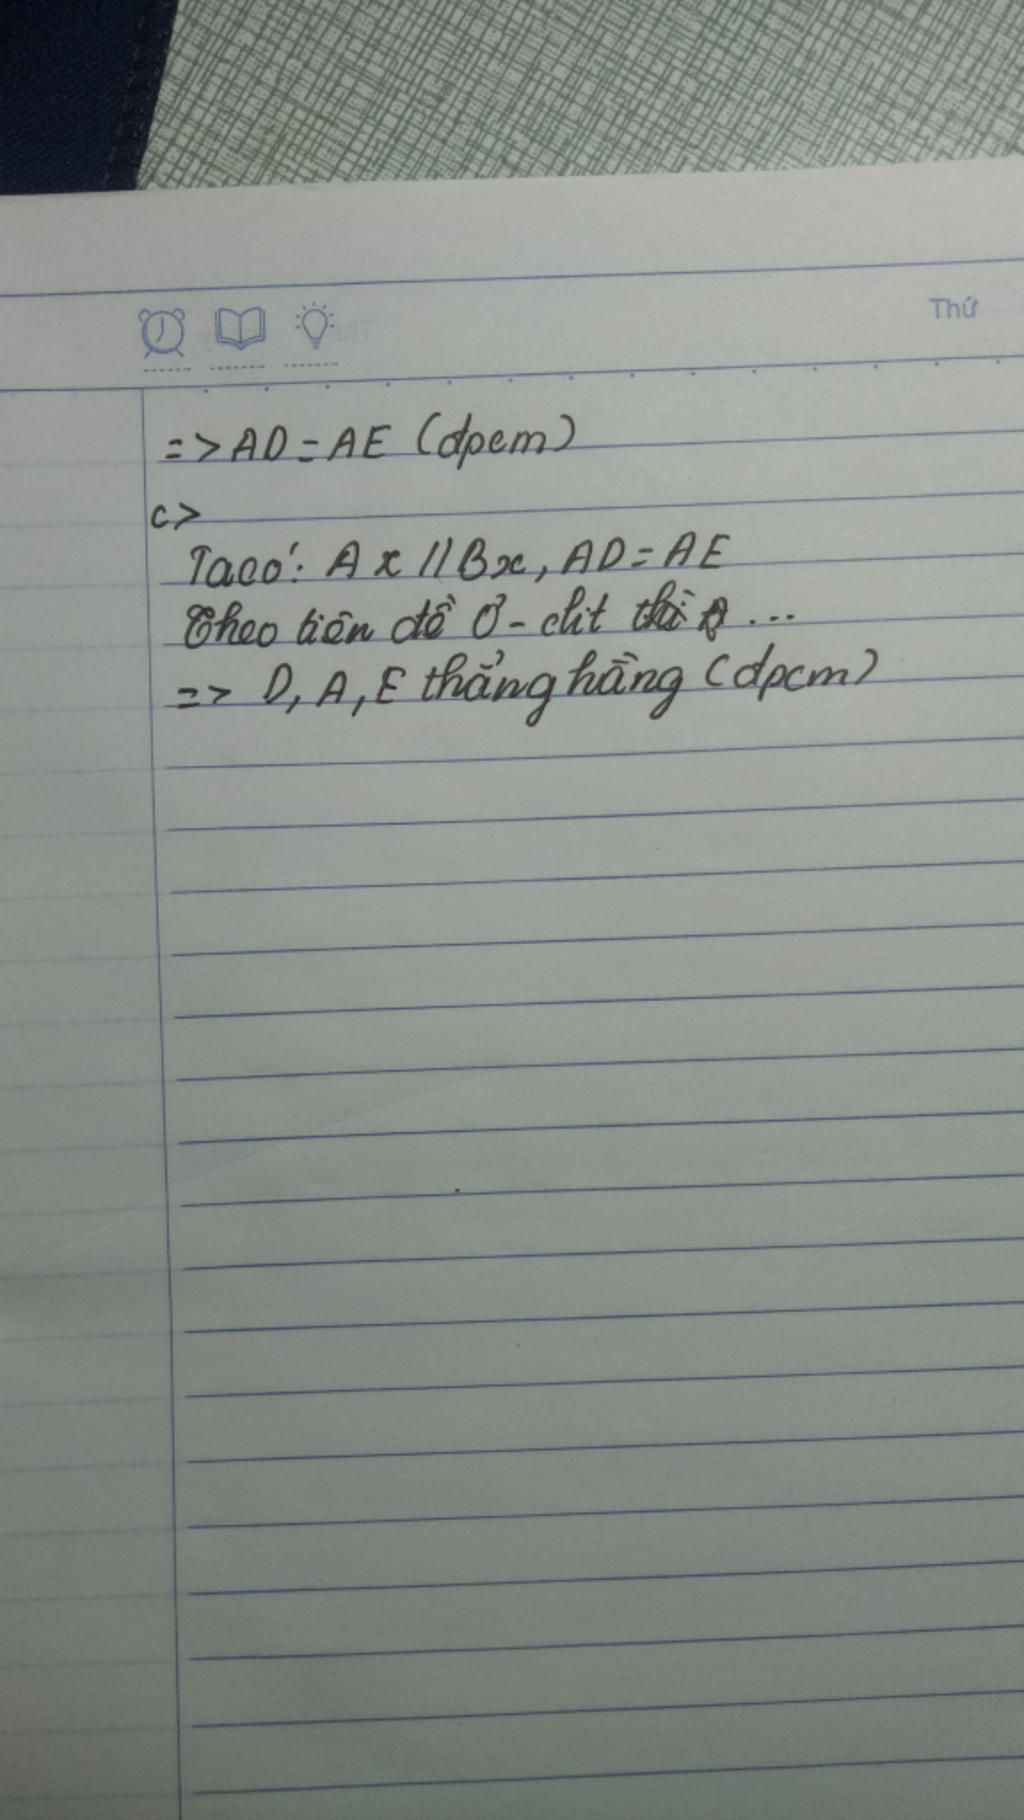 Thứ
=> AD = AE (dpcm)
c>
Ta có: Ax // Bx, AD = AE
Theo tiên đề Ơ-clit thì ...
=> D, A, E thẳng hàng (dpcm)